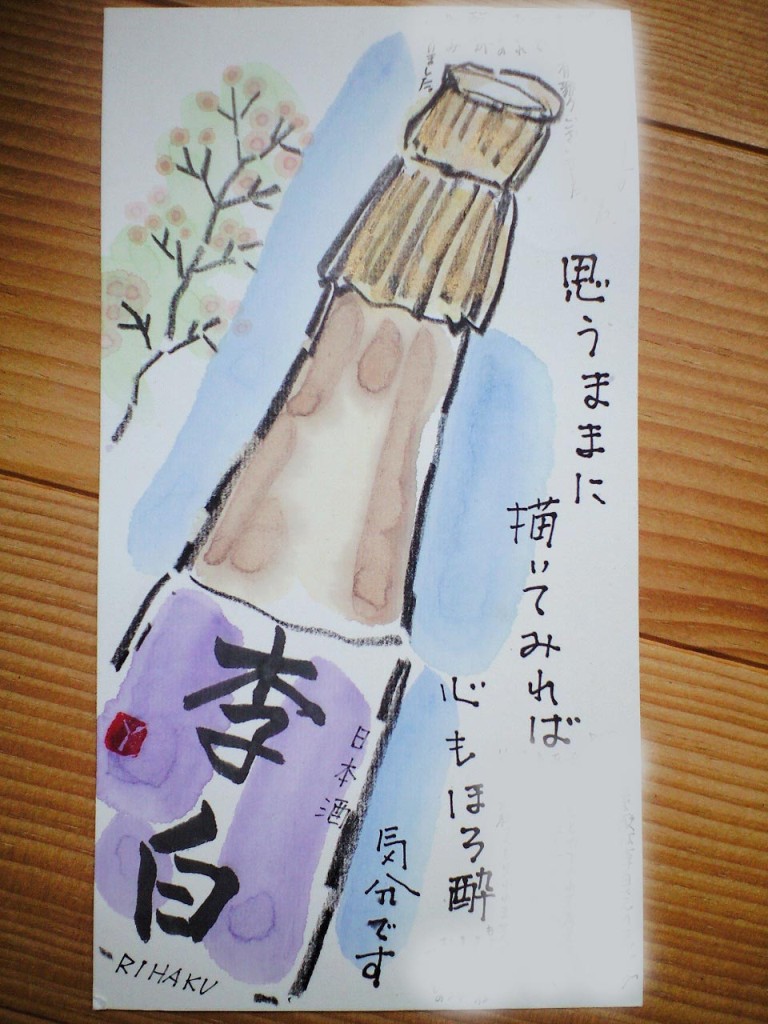 思うままに
描いてみれば
心もほろ酔
気分です
李白
日本酒
RIHAKU
ました。